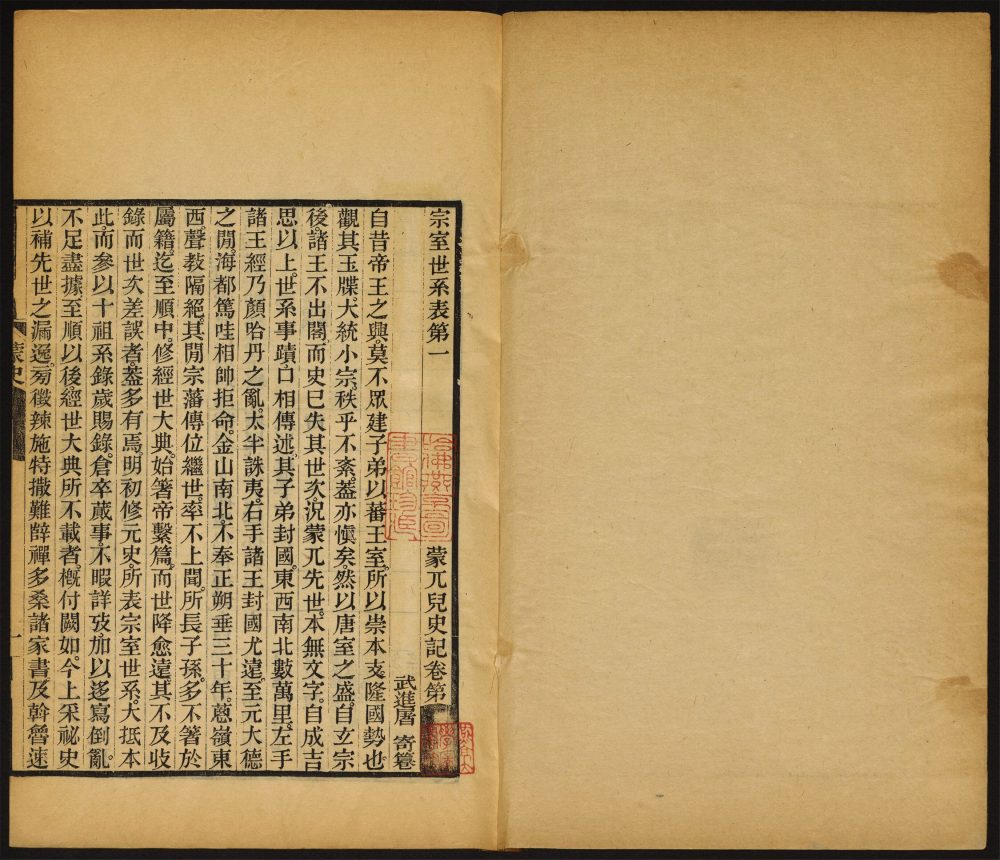 宗室世系表第一 蒙兀兒史記卷第
武進屠 寄篹
自昔帝王之興。莫不眾建子弟以蕃王室。所以崇本支。隆國勢也。
觀其玉牒。大統小宗。秩乎不紊。蓋亦愼矣。然以唐室之盛。自玄宗
後。諸王不出閤。而史已失其世次。況蒙兀先世。本無文字。自成吉
思以上。世系事蹟。口相傳述。其子弟封國。東西南北數萬里。左手
諸王經乃顏哈丹之亂。太半誅夷。右手諸王封國尤遠。至元大德
之閒。海都篤哇相帥拒命。金山南北。不奉正朔垂三十年。蔥嶺東
西。聲教隔絕。其閒宗藩傳位繼世。率不上聞。所長子孫。多不箸於
屬籍。迄至順中。修經世大典。始箸帝繫篇。而世降愈遠。其不及收
錄而世次差誤者。蓋多有焉。明初修元史。所表宗室世系。大抵本
此。而參以十祖系錄歲賜錄。倉卒蕆事。不暇詳攷。加以迻寫倒亂。
不足盡據。至順以後。經世大典所不載者。槪付闕如。今上采祕史
以補先世之漏逸。㫄徵辣施特撒難辥禪多桑諸家書。及斡罾速
蒙史
一